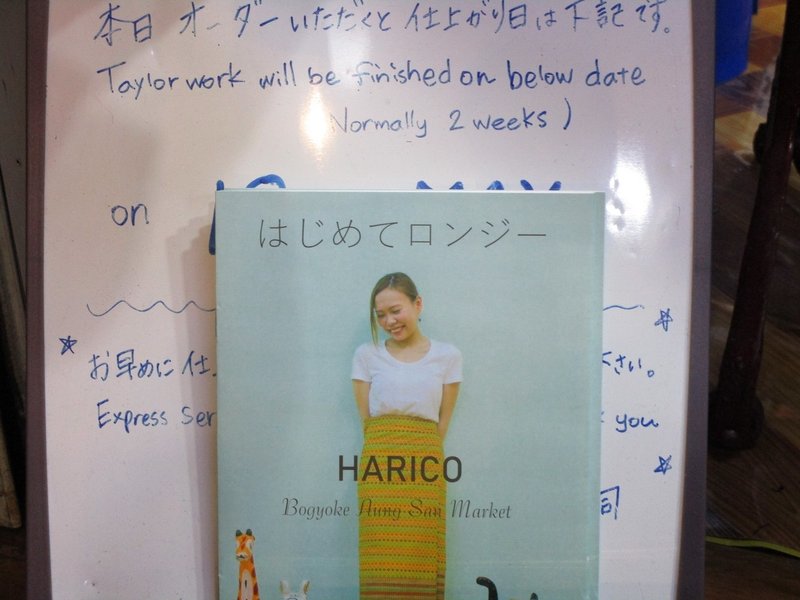 本日 オーダーいただくと 仕上がり日は下記です。
Taylor work will be finished on below date
Normally 2 weeks )
on
はじめてロンジー
お早めに仕
下さい。
Express Ser
you
HARICO
Bogyoke Aung San Market
同